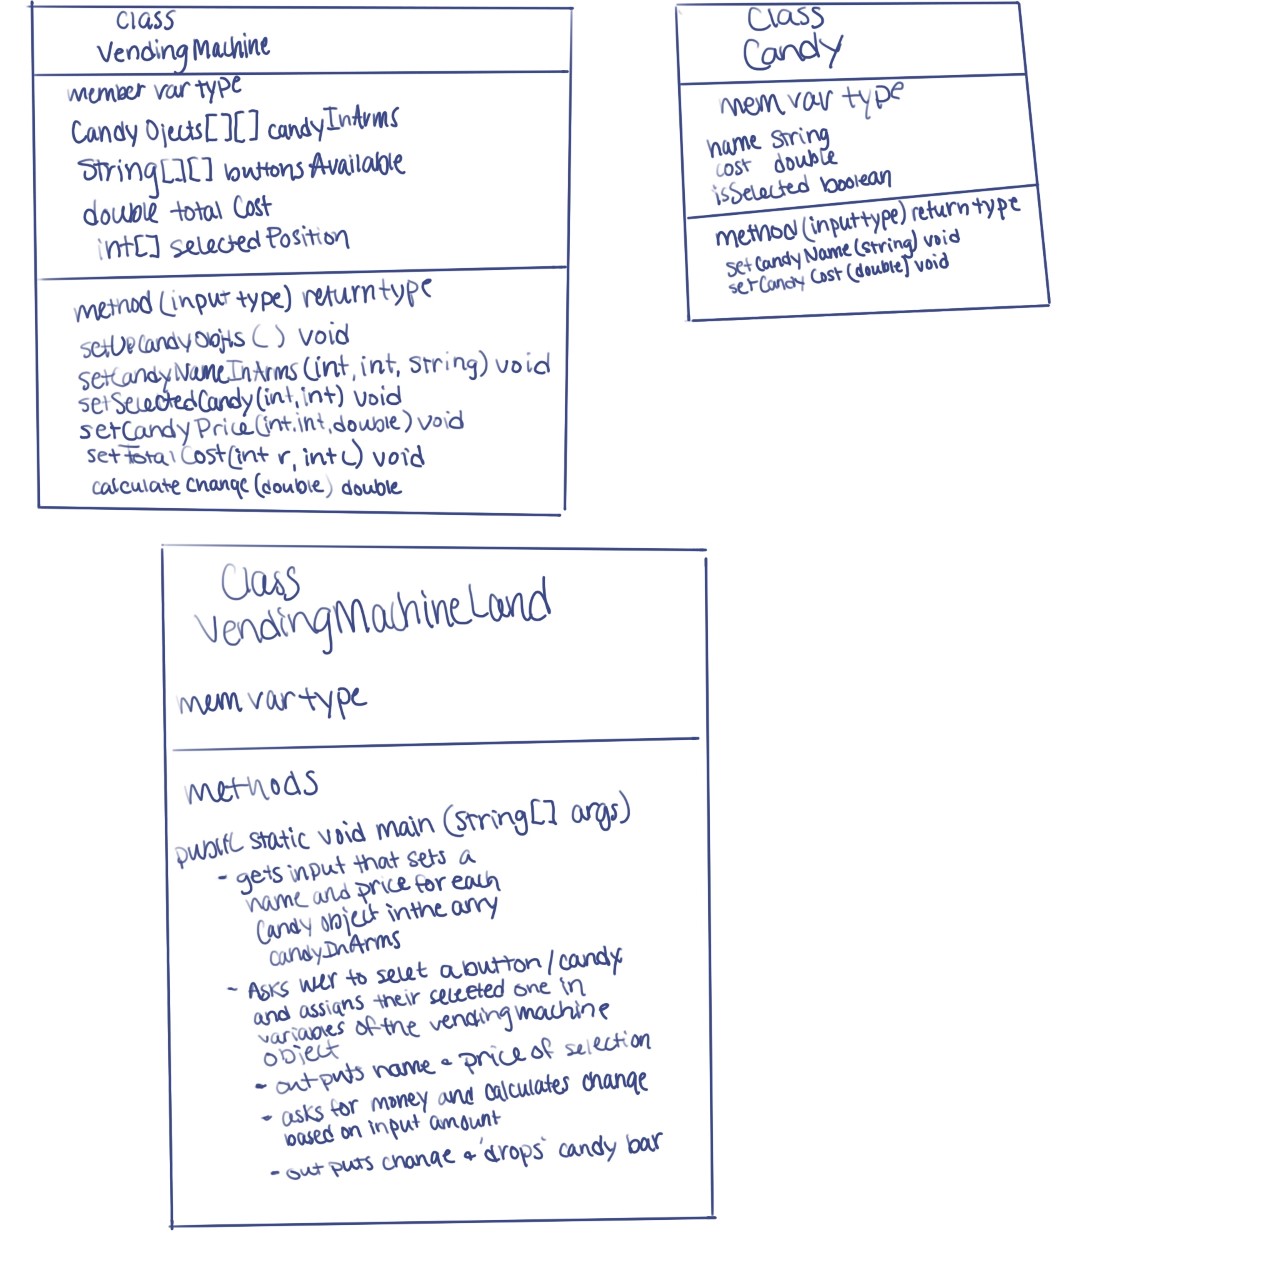 Class
VendingMachine
member var type
Candy Ojects[][] candyInArms
String[][] buttonsAvailable
double total Cost
int[] selectedPosition
method (input type) return type
setUpCandyObjts ( ) void
setCandyNameInArms (int, int, string) void
setSelectedCandy (int, int) void
setCandyPrice (int, int, double) void
setTotalCost (int r, int c) void
calculate change (double) double
Class
Candy
mem var type
name String
cost double
isSelected boolean
method (input type) return type
setCandyName (string) void
setCandyCost (double) void
Class
VendingMachineLand
mem var type
methods
public static void main (String[] args)
- gets input that sets a
name and price for each
Candy object in the arry
candyInArms
- Asks user to selet a button / candy
and assigns their selected one in
variables of the vending machine
object
- outputs name & price of selection
- asks for money and calculates change
based on input amount
- outputs change & 'drops' candy bar